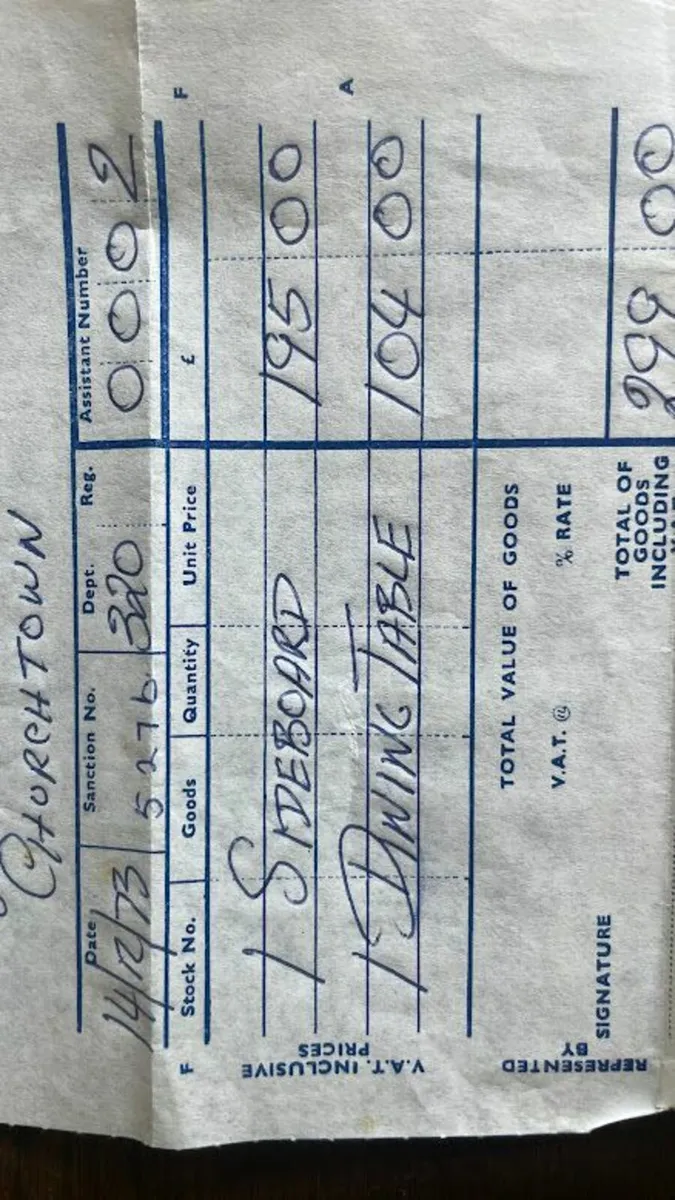 CHURCHTOWN
Date Sanction No. Dept. Reg. Assistant Number
14/12/73 5276 320 0002
F Stock No. Goods Quantity Unit Price £ F
1 SIDEBOARD 195 00
A
1 DINING TABLE 104 00
V.A.T. INCLUSIVE
PRICES
TOTAL VALUE OF GOODS
V.A.T. @ % RATE
REPRESENTED
BY
SIGNATURE
TOTAL OF
GOODS
INCLUDING
299 00